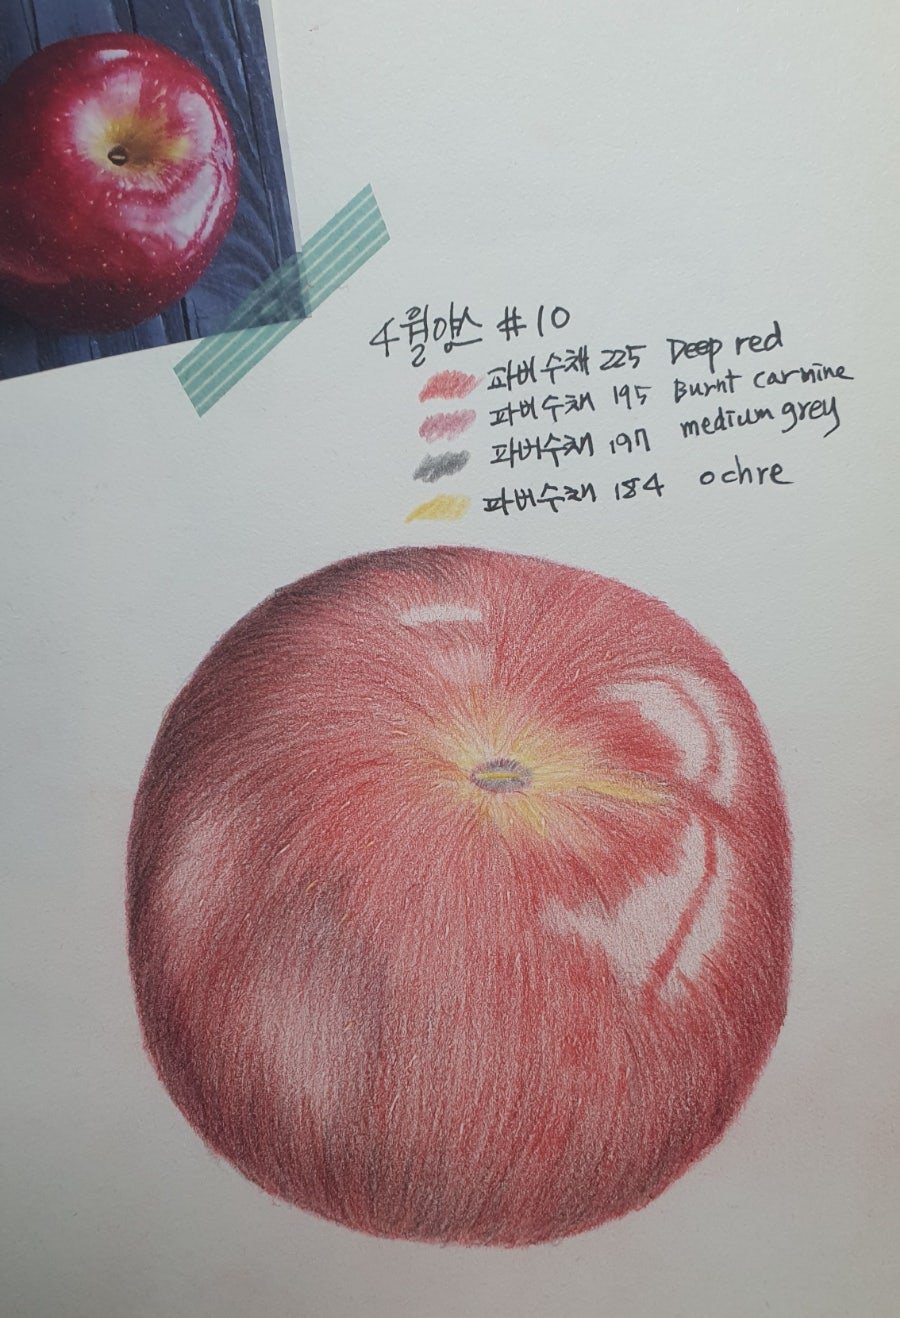 4월얀스 #10
파버수채 225 Deep red
파버수채 195 Burnt carmine
파버수채 197 medium grey
파버수채 184 ochre